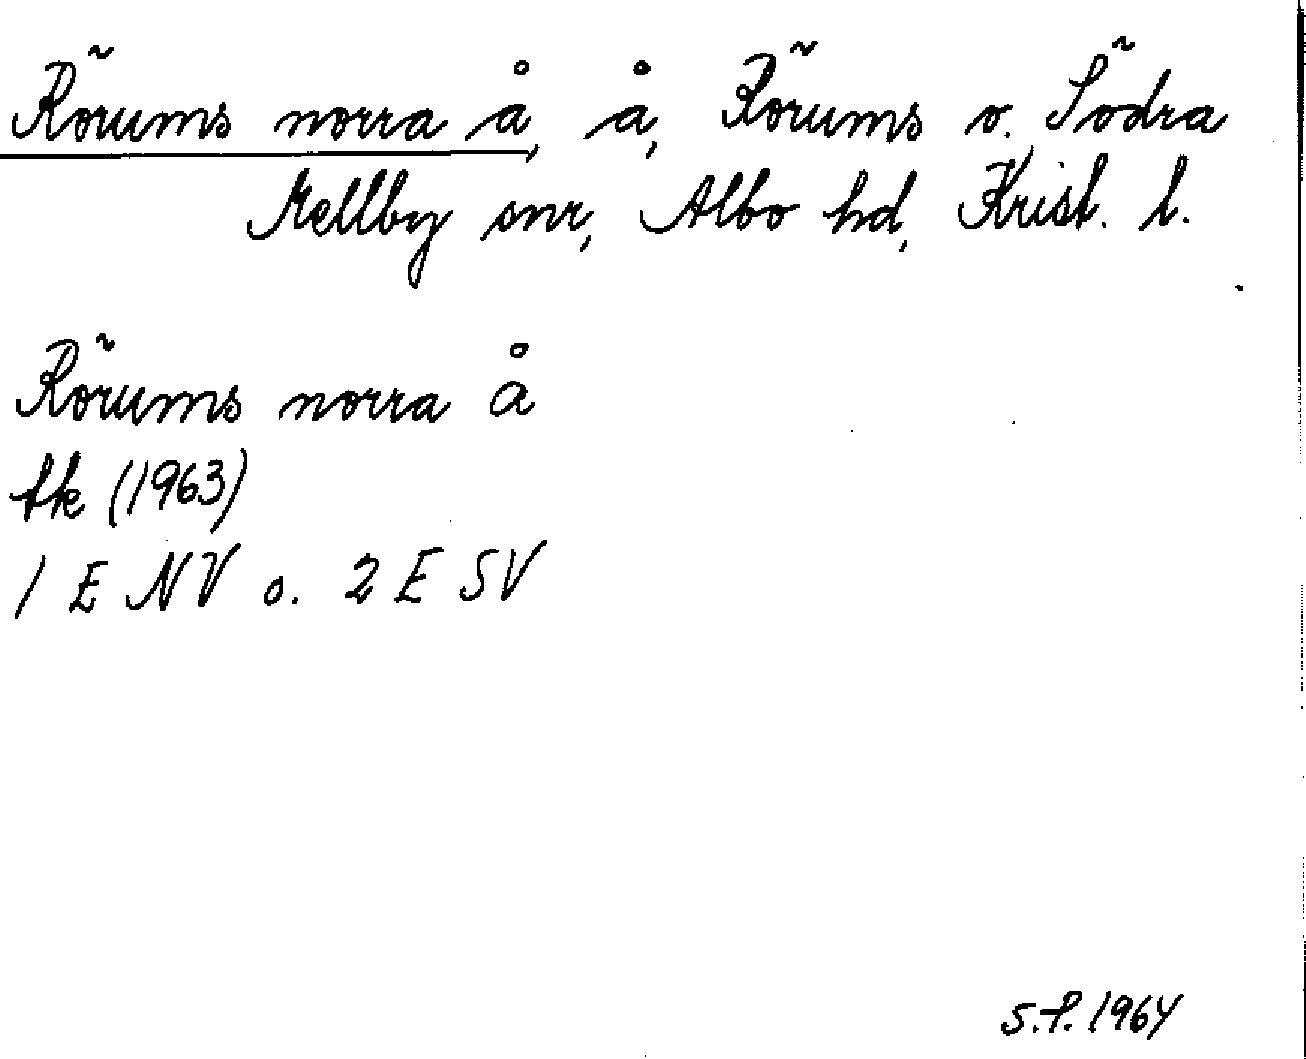 Rörums norra å, å, Rörums o. Södra
Mellby snr, Albo hd, Krist. l.
Rörums norra å
tk (1963)
1 E NV o. 2 E SV
S.F. 1964